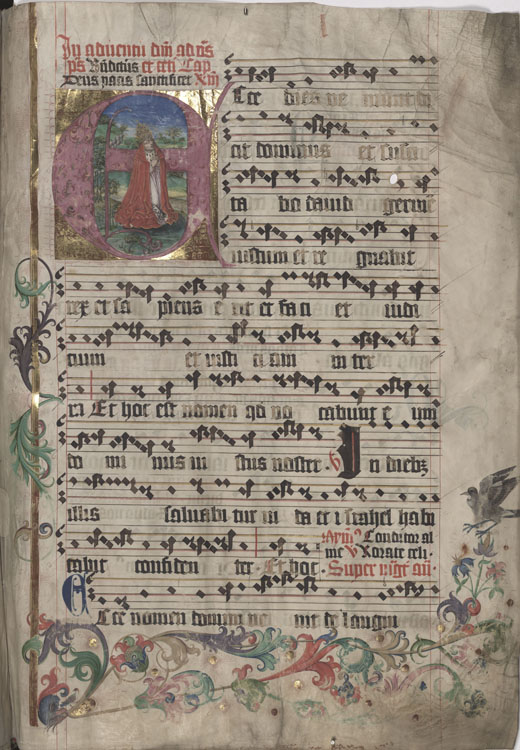 In adventu dni ad vs
ps Bndctus et ceti Cap
Deus pacis sanctificet Xm
Ecce dies ve niunt di
cit dominus et susci
ta bo david germe
iustum et re gnabit
rex et sa piens e rit et fa ci et iudi
cium et iusti ci am in ter
ra Et hoc est nomen qd vo cabunt e um
do mi nus iu stus noster V In diebz
illis salvabi tur iu da et israhel habi
Conditor al
me V Rorate celi
tabit confiden ter Et hoc Super mgt an
Ecce nomen domini ve nit de longin